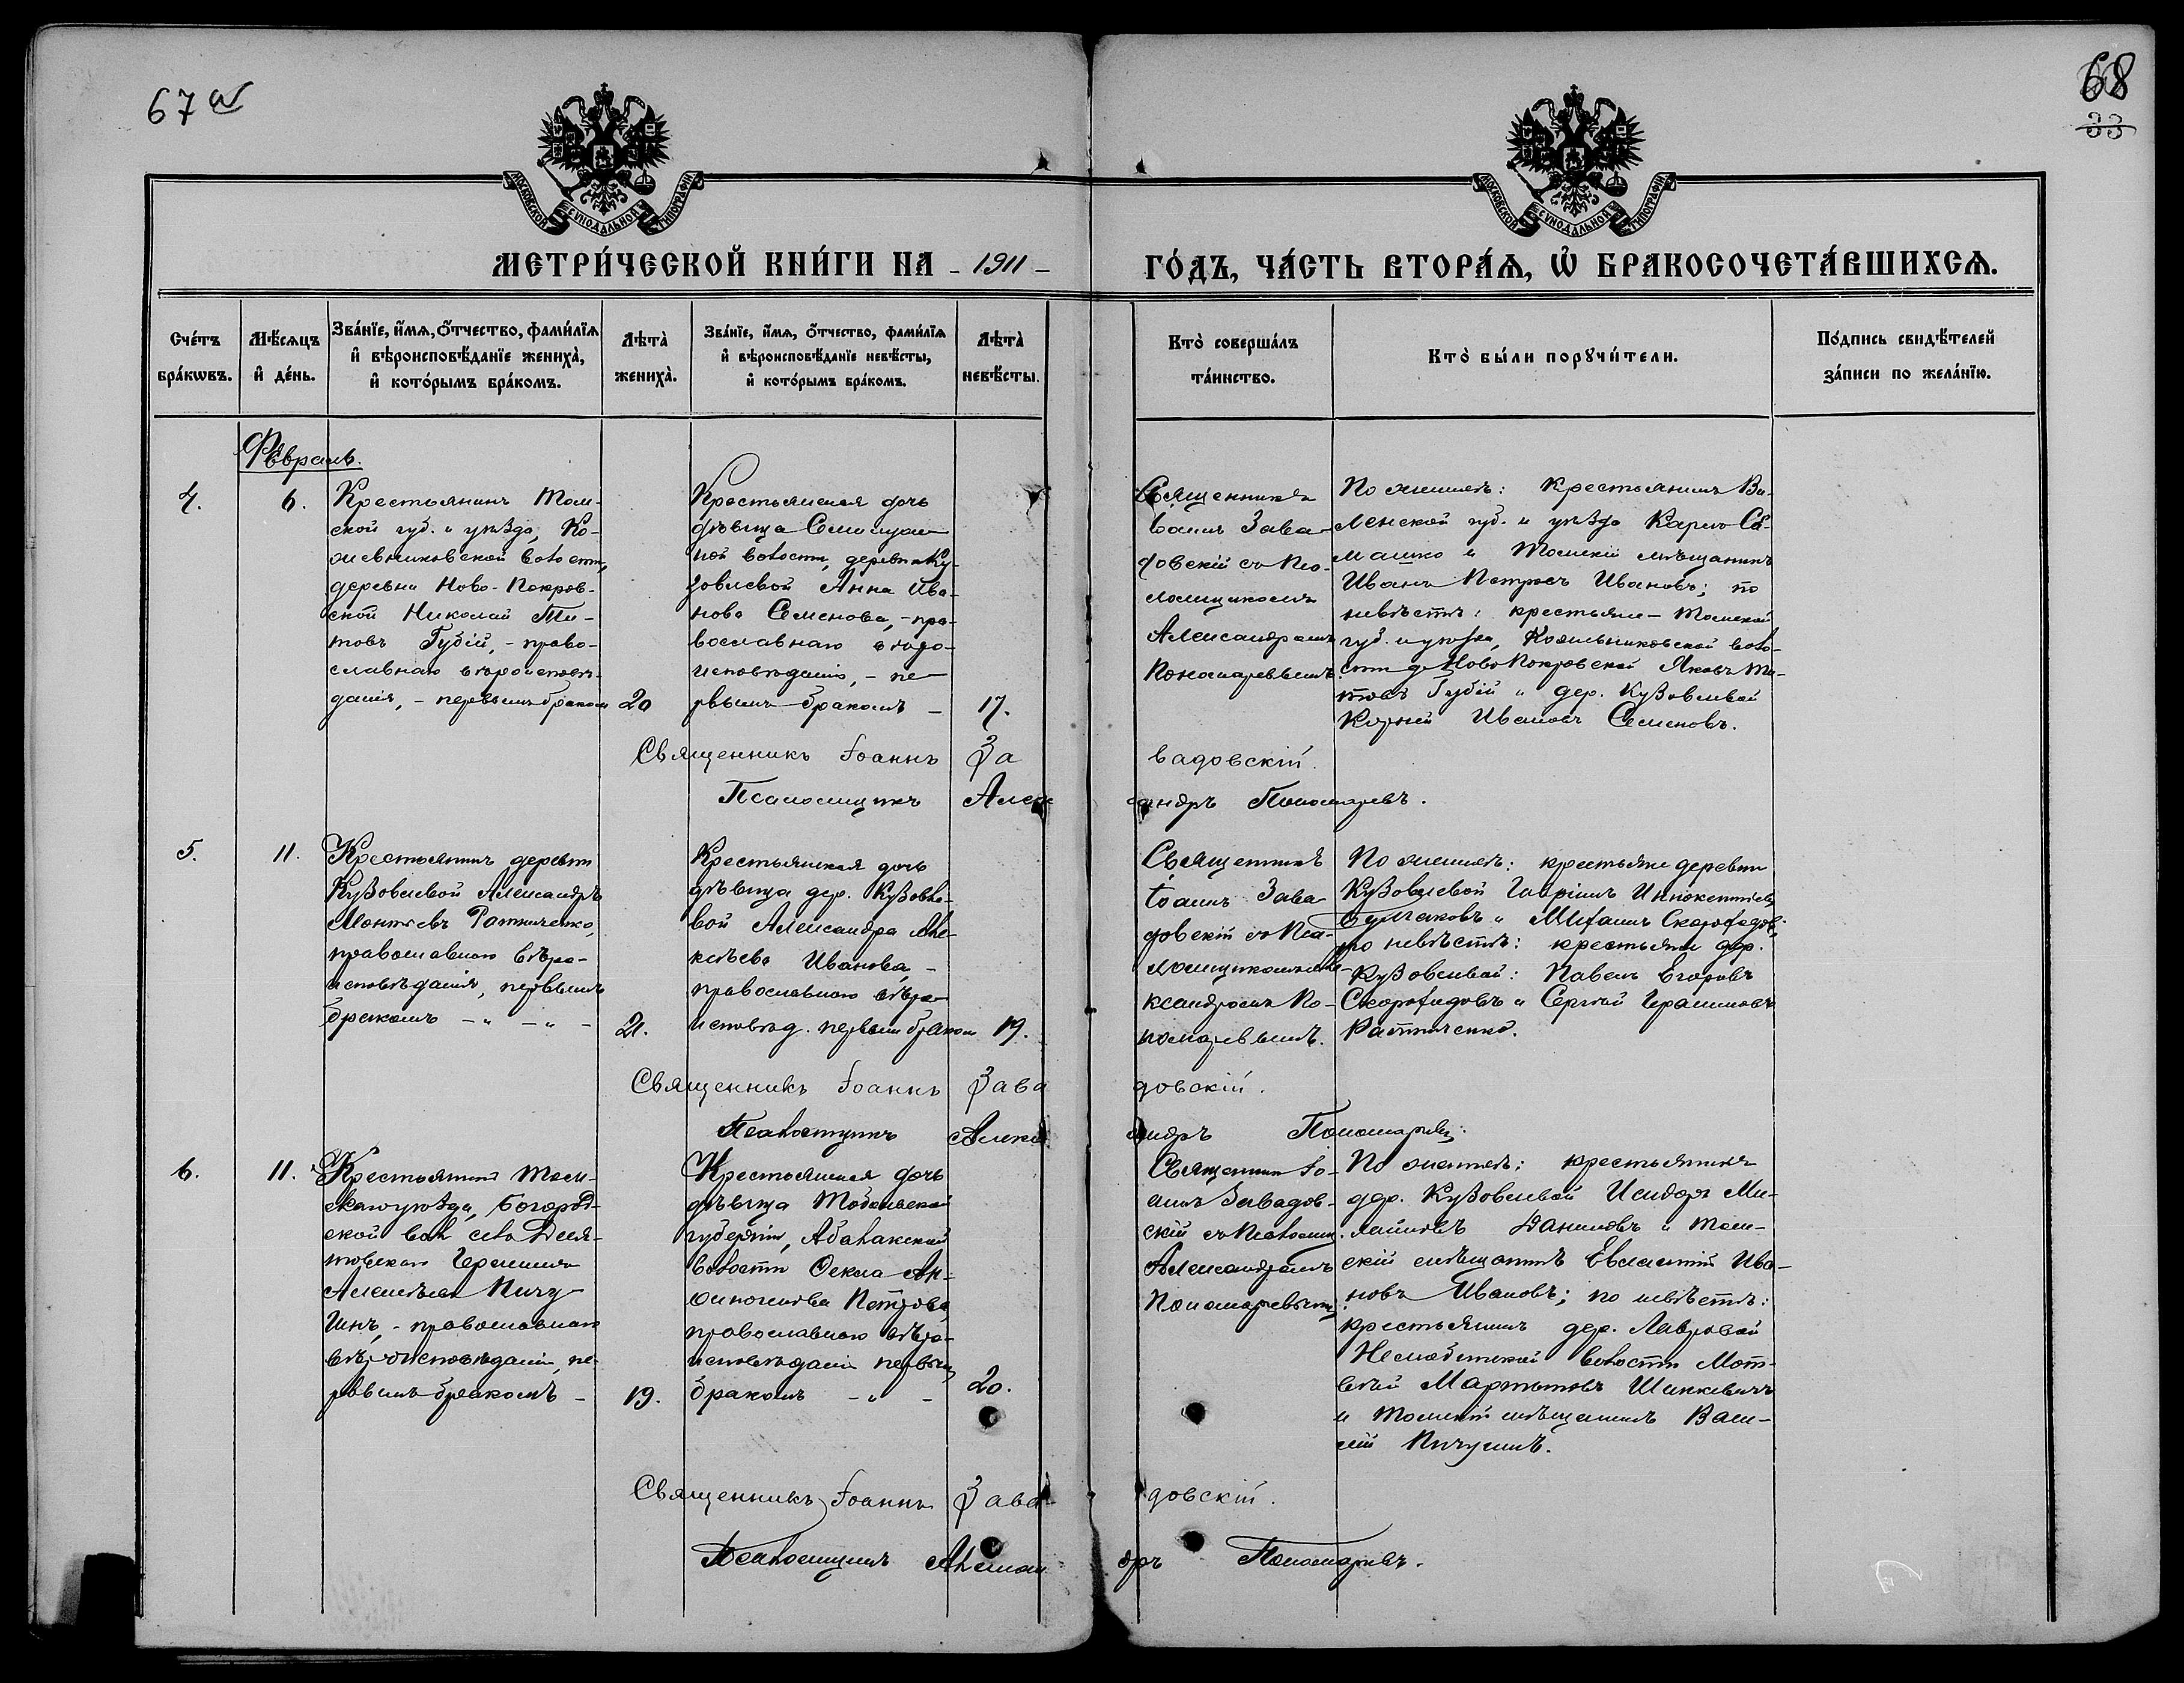 67 об
68
33
МОСКОВСКОЙ СѴНОДАЛЬНОЙ ТИПОГРАФІИ
МОСКОВСКОЙ СѴНОДАЛЬНОЙ ТИПОГРАФІИ
МЕТРИ́ЧЕСКОЙ КНИ́ГИ НА - 1911 -
ГО́ДЪ, ЧА́СТЬ ВТОРА́Ѧ, Ѡ҆ БРАКОСОЧЕТА́ВШИХСѦ.
Сче́тъ бра́кѡвъ.
Мѣ́сѧцъ и҆ де́нь.
Зва́нїе, и҆́мѧ, о҆́тчество, фами́лїѧ
и҆ вѣроисповѣ́данїе жениха̀,
и҆ кото́рымъ бра́комъ.
Лѣта̀ жениха̀.
Зва́нїе, и҆́мѧ, о҆́тчество, фами́лїѧ
и҆ вѣроисповѣ́данїе невѣ́сты,
и҆ кото́рымъ бра́комъ.
Лѣта̀ невѣ́сты.
Кто̀ соверша́лъ
та́инство.
Кто̀ бы́ли порꙋчи́тели.
По́дпись свидѣ́телей
за́писи по жела́нїю.
Февраль.
4.
6.
Крестьянинъ Том-
ской губ. и уѣзда, Ко-
жевниковской волости,
деревни Ново-Покров-
ской Николай Ти-
товъ Губій, - право-
славнаго вѣроисповѣ-
данія, - первымъ бракомъ
20
Крестьянская дочь
дѣвица
ной волости, деревни Ку-
зовлевой Анна Ива-
нова Семенова, - пра-
вославнаго вѣро-
исповѣданія, - пе-
рвымъ бракомъ -
17.
Священникъ
Іоаннъ Зава-
довскій съ Пса-
ломщикомъ
Александромъ
Пономаревымъ.
По женихѣ: Крестьянинъ Ви-
ленской губ. и уѣзда Карлъ Се-
машко и Томскій мѣщанинъ
Иванъ Петровъ Ивановъ; по
невѣстѣ: крестьяне - Томской
губ. и уѣзда, Кожевниковской воло-
сти д. Ново Покровской Яковъ Ти-
товъ Губій и дер. Кузовлевой
Корній Ивановъ Семеновъ.
Священникъ Іоаннъ Завадовскій.
Псаломщикъ Александръ Пономаревъ.
5.
11.
Крестьянинъ деревни
Кузовлевой Александръ
Леонтьевъ Ратниченко,
православнаго вѣро-
исповѣданія, первымъ
бракомъ - " - " -
21.
Крестьянская дочь
дѣвица дер. Кузовле-
вой Александра Але-
ксѣева Иванова, -
православнаго вѣро-
исповѣд. первымъ бракомъ
19.
Священникъ
Іоаннъ Зава-
довскій съ Пса-
ломщикомъ Але-
ксандромъ По-
номаревымъ.
По женихѣ: крестьяне деревни
Кузовлевой Гавріилъ Иннокентьевъ
Булгаковъ и Михаилъ Скороходовъ;
по невѣстѣ: крестьяне дер.
Кузовлевой: Павелъ Егоровъ
Скороходовъ и Сергѣй Герасимовъ
Ратниченко.
Священникъ Іоаннъ Завадовскій.
Псаломщикъ Александръ Пономаревъ.
6.
11.
Крестьянинъ Том-
скаго уѣзда, Богород-
ской вол. села Десл-
товскаго Герасимъ
Алексѣевъ Пичу-
гинъ, - православнаго
вѣроисповѣданія, пе-
рвымъ бракомъ -
19.
Крестьянская дочь
дѣвица Тобольской
губерніи, Абалакской
волости Ѳекла
Петрова,
православнаго вѣро-
исповѣданія первымъ
бракомъ - " -
20.
Священникъ Іо-
аннъ Завадов-
скій съ Псаломщ.
Александромъ
Пономаревымъ.
По женихѣ: крестьянинъ
дер. Кузовлевой Исидоръ Ми-
хайловъ Даниловъ и Том-
скій мѣщанинъ Евлампій Ива-
новъ Ивановъ; по невѣстѣ:
крестьянинъ дер. Лавровой
Нелюбинской волости Мат-
вѣй Мартыновъ Шинкевичъ
и Томскій мѣщанинъ Васи-
лій Пичугинъ.
Священникъ Іоаннъ Завадовскій.
Псаломщикъ Александръ Пономаревъ.